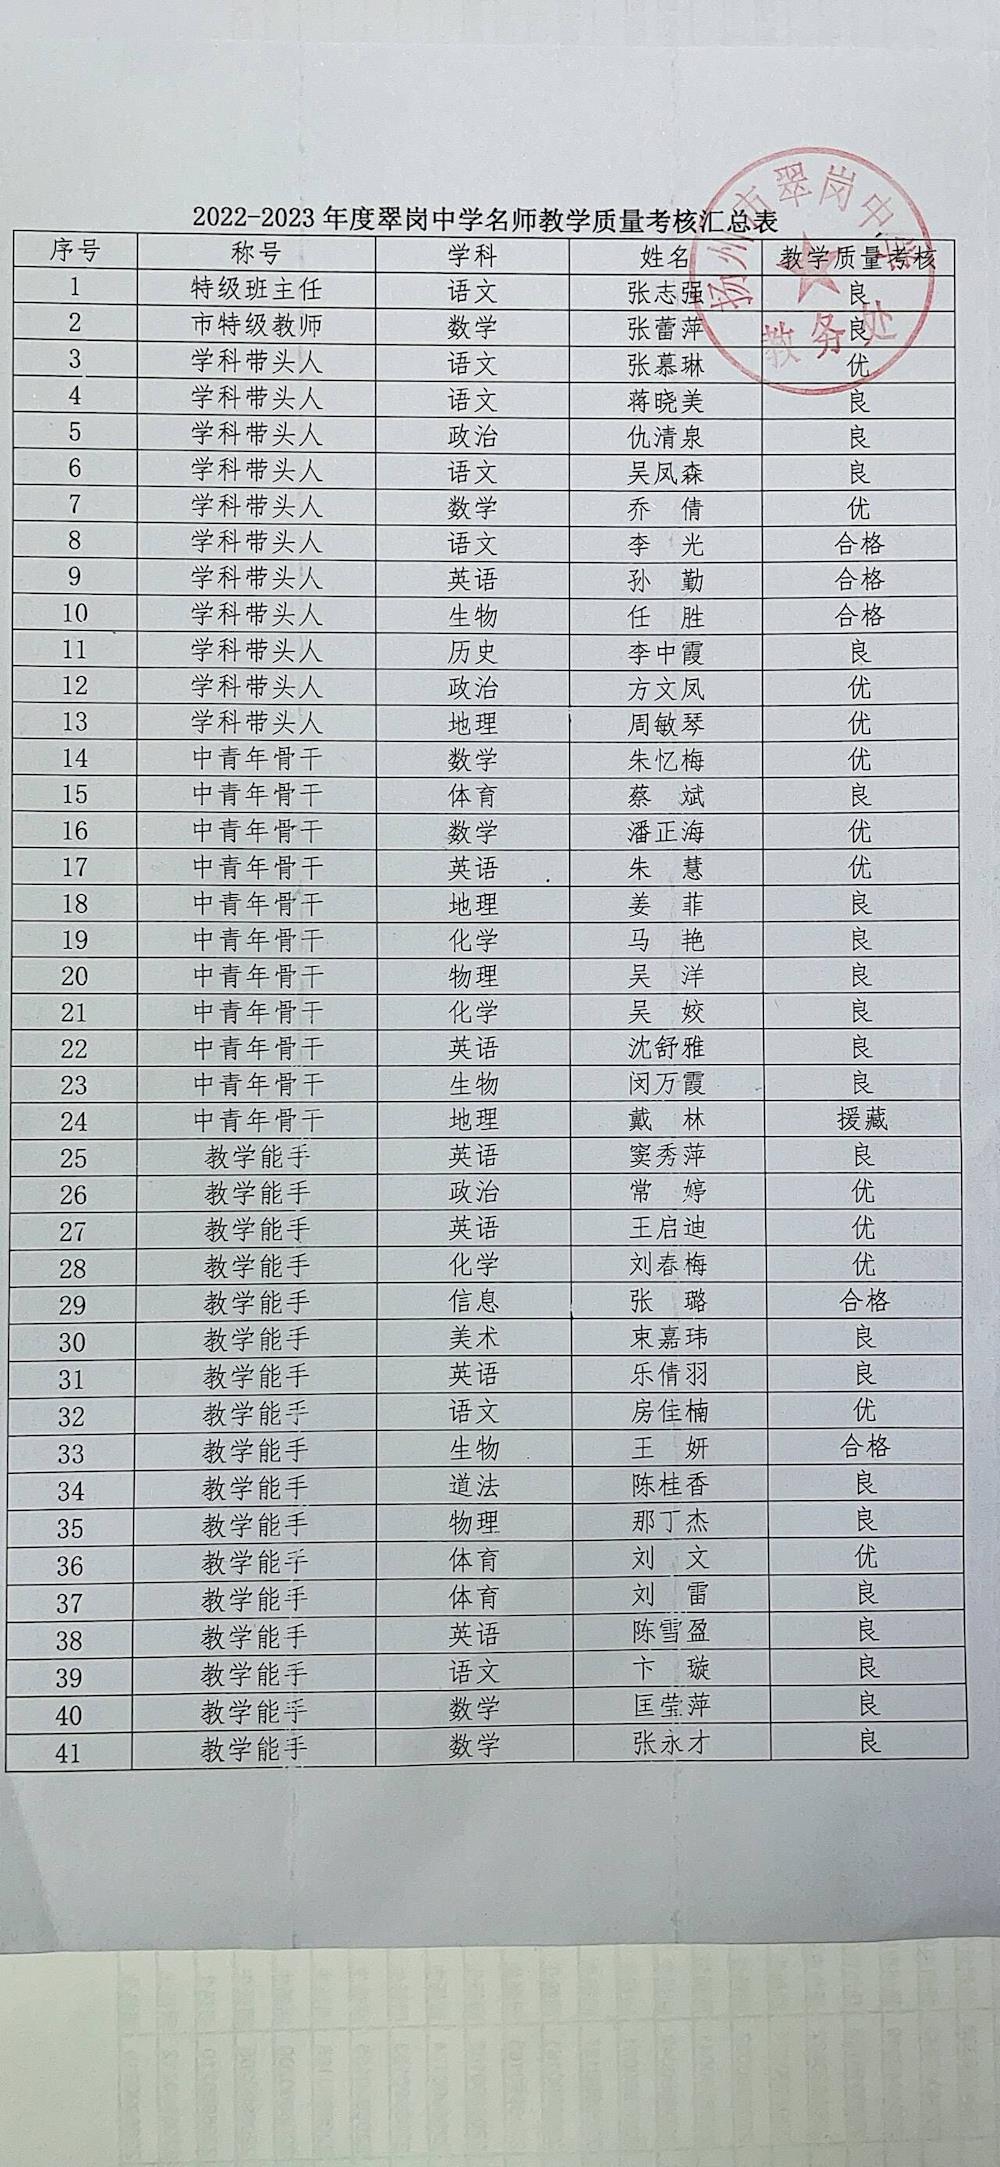 2022-2023年度翠岗中学名师教学质量考核汇总表
序号 称号 学科 姓名 教学质量考核
1 特级班主任 语文 张志强 良
2 市特级教师 数学 张蕾萍 良
3 学科带头人 语文 张慕琳 优
4 学科带头人 语文 蒋晓美 良
5 学科带头人 政治 仇清泉 良
6 学科带头人 语文 吴凤森 良
7 学科带头人 数学 乔 倩 优
8 学科带头人 语文 李 光 合格
9 学科带头人 英语 孙 勤 合格
10 学科带头人 生物 任 胜 合格
11 学科带头人 历史 李中霞 良
12 学科带头人 政治 方文凤 优
13 学科带头人 地理 周敏琴 优
14 中青年骨干 数学 朱忆梅 优
15 中青年骨干 体育 蔡 斌 良
16 中青年骨干 数学 潘正海 优
17 中青年骨干 英语 朱 慧 优
18 中青年骨干 地理 姜 菲 良
19 中青年骨干 化学 马 艳 良
20 中青年骨干 物理 吴 洋 良
21 中青年骨干 化学 吴 姣 良
22 中青年骨干 英语 沈舒雅 良
23 中青年骨干 生物 闵万霞 良
24 中青年骨干 地理 戴 林 援藏
25 教学能手 英语 窦秀萍 良
26 教学能手 政治 常 婷 优
27 教学能手 英语 王启迪 优
28 教学能手 化学 刘春梅 优
29 教学能手 信息 张 璐 合格
30 教学能手 美术 束嘉玮 良
31 教学能手 英语 乐倩羽 良
32 教学能手 语文 房佳楠 优
33 教学能手 生物 王 妍 合格
34 教学能手 道法 陈桂香 良
35 教学能手 物理 那丁杰 良
36 教学能手 体育 刘 文 优
37 教学能手 体育 刘 雷 良
38 教学能手 英语 陈雪盈 良
39 教学能手 语文 卞 璇 良
40 教学能手 数学 匡莹萍 良
41 教学能手 数学 张永才 良
扬州市翠岗中学
教务处